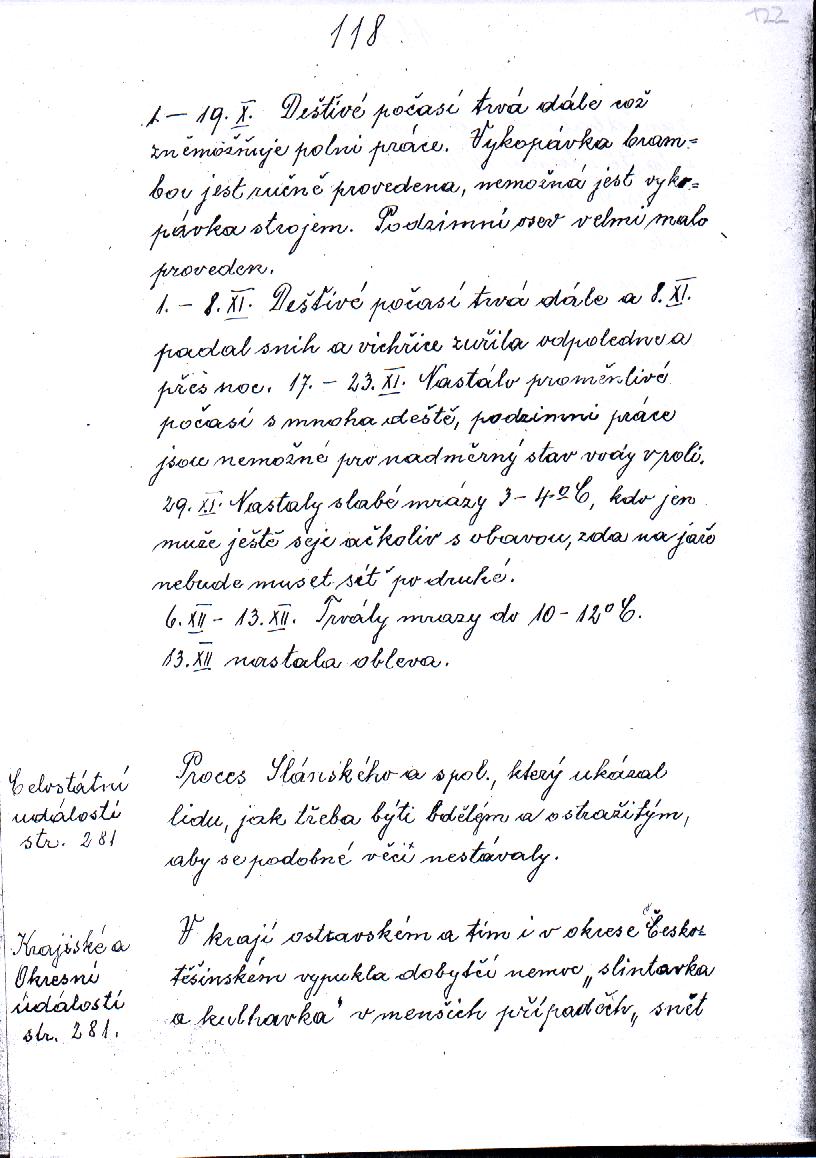 118
122
1. – 19. X. Deštivé počasí trvá dále což
zněmožňuje polni práce. Vykopávka bram=
bor jest ručně provedena, nemožná jest vyko=
pávka strojem. Podzimní osev velmi malo
proveden.
1. – 8. XI. Deštivé počasí trvá dále a 8. XI.
padal snih a vichřice zuřila odpoledne a
přes noc. 17. – 23. XI. Nastálo proměnlivé
počasí s mnoha deště, podzimni práce
jsou nemožné pro nadměrný stav vody v poli.
29. XI. Nastaly slabé mrázy 3 – 4° C, kdo jen
muže ještě seje ačkoliv s obavou, zda na jaře
nebude muset sít po druhé.
6. XII – 13. XII. Trvály mrazy do 10 – 12° C.
13. XII nastala obleva.
Celostátní
událostí
str. 281
Proces Slánského a spol., který ukázal
lidu, jak třeba býti bdělým a ostražitým,
aby se podobné věci nestávaly.
Krajské a
Okresní
událostí
str. 281.
V krají ostravském a tím i v okrese Česko=
těšínském vypukla dobytčí nemoc „slintavka
a kulhavka" v menšich případech „snět